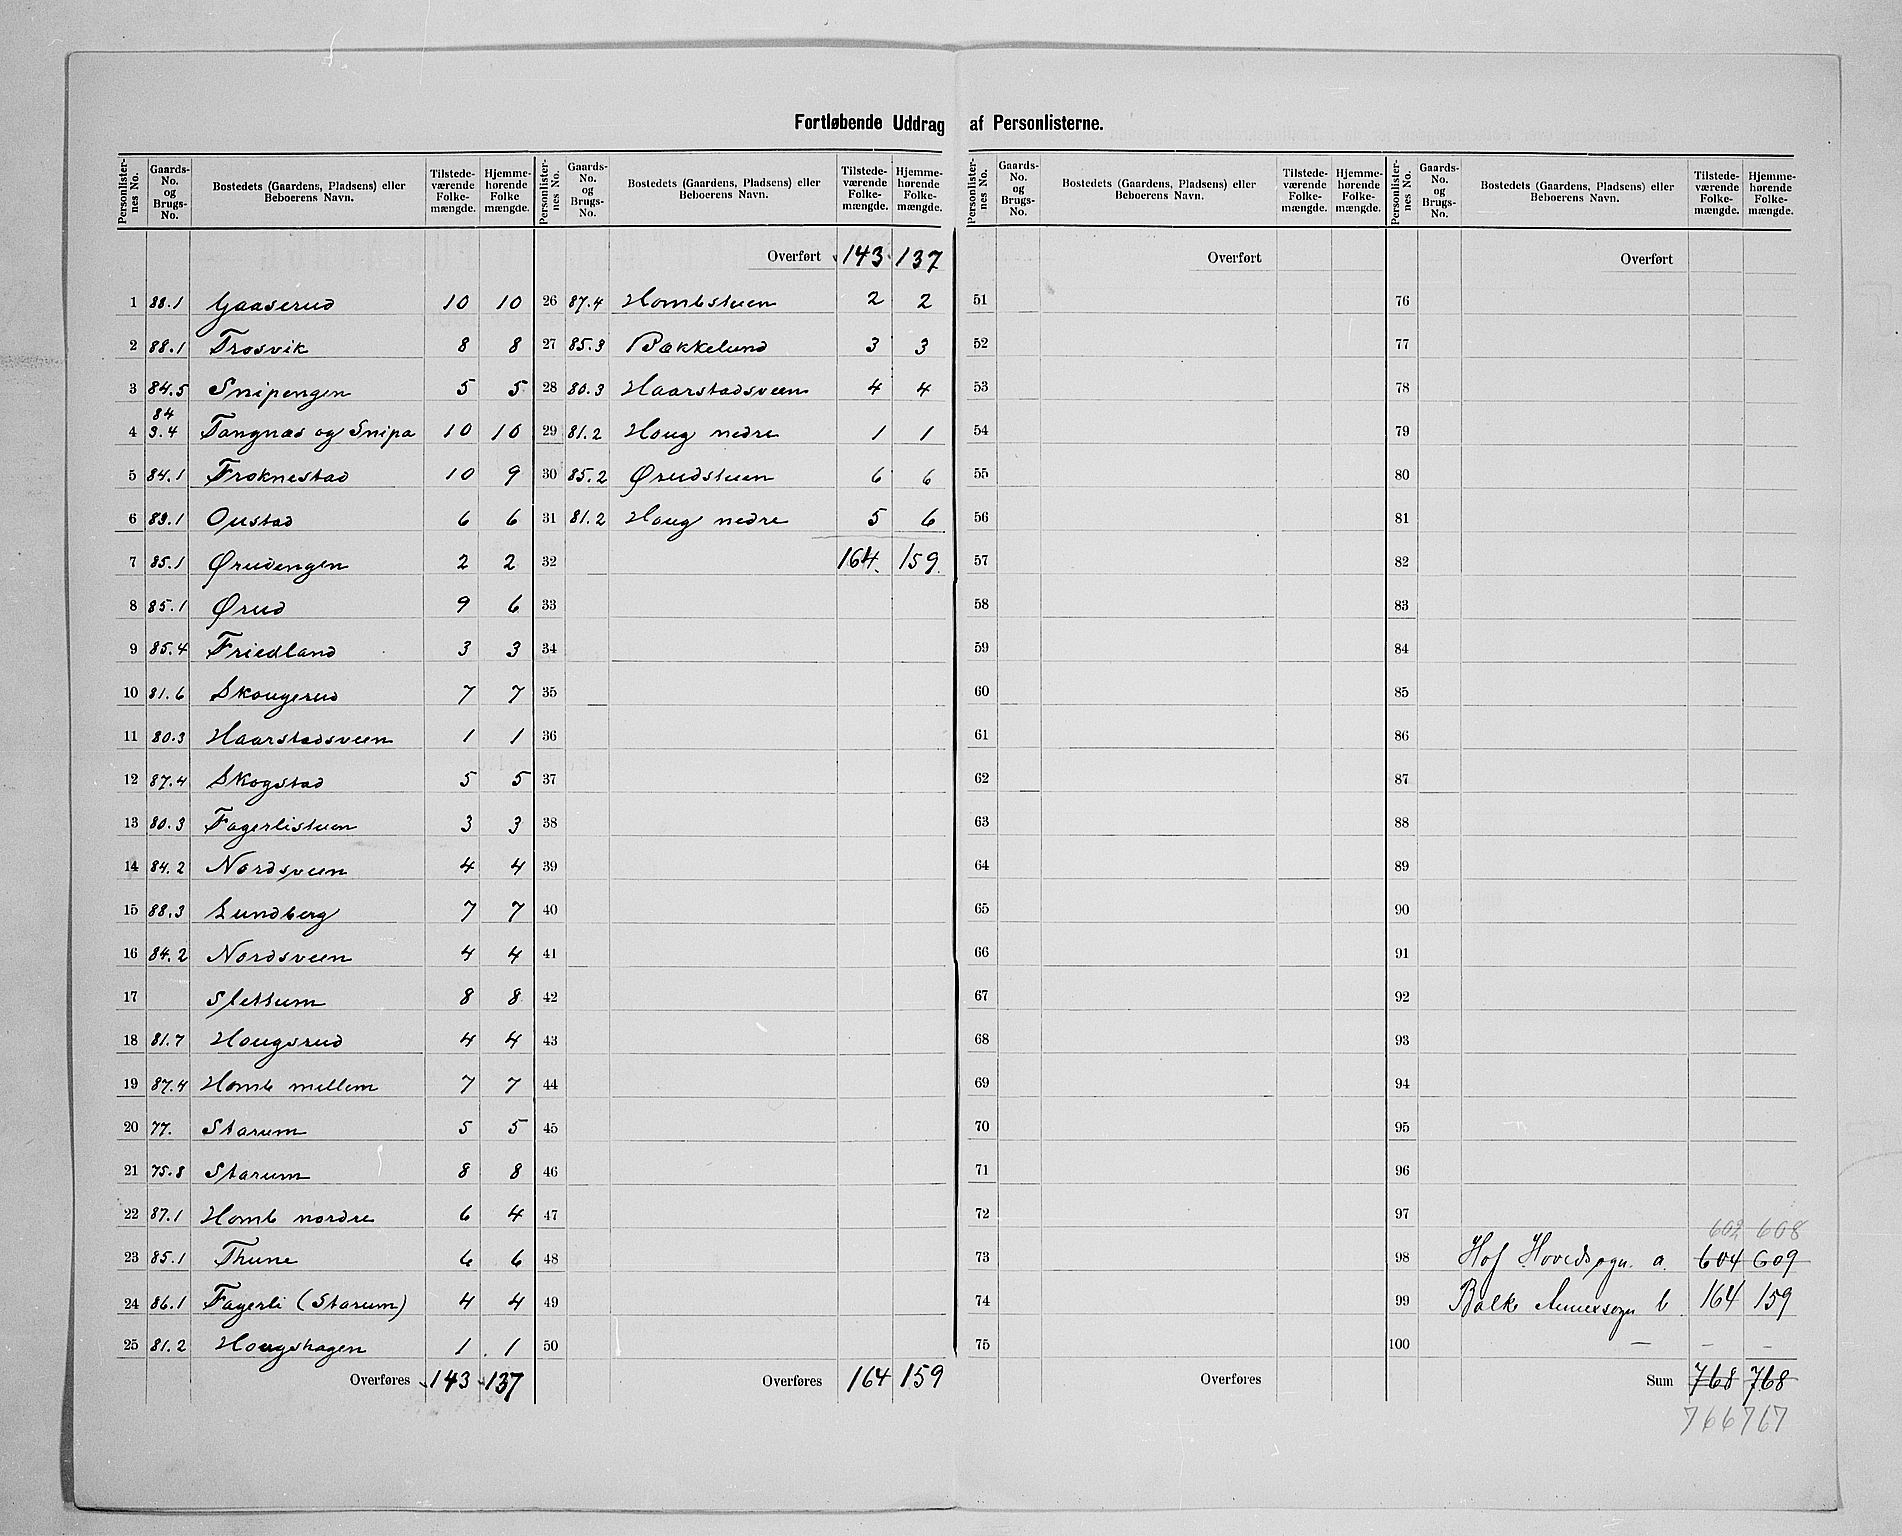 Fortløbende Uddrag af Personlisterne.
Personlister-nes No. Gaards-No. og Brugs-No. Bostedets (Gaardens, Pladsens) eller Beboerens Navn. Tilstede-værende Folke-mængde. Hjemme-hørende Folke-mængde.
Personlister-nes No. Gaards-No. og Brugs-No. Bostedets (Gaardens, Pladsens) eller Beboerens Navn. Tilstede-værende Folke-mængde. Hjemme-hørende Folke-mængde.
Personlister-nes No. Gaards-No. og Brugs-No. Bostedets (Gaardens, Pladsens) eller Beboerens Navn. Tilstede-værende Folke-mængde. Hjemme-hørende Folke-mængde.
Personlister-nes No. Gaards-No. og Brugs-No. Bostedets (Gaardens, Pladsens) eller Beboerens Navn. Tilstede-værende Folke-mængde. Hjemme-hørende Folke-mængde.
1 88.1 Gaaserud 10 10
2 88.1 Trosvik 8 8
3 84.5 Snipengen 5 5
84
4 3.4 Tangnæs og Snipa 10 10
5 84.1 Froknestad 10 9
6 83.1 Oustad 6 6
7 85.1 Ørudengen 2 2
8 85.1 Ørud 9 6
9 85.4 Friedland 3 3
10 81.6 Skougerud 7 7
11 80.3 Haarstadsveen 1 1
12 87.4 Skogstad 5 5
13 80.3 Fagerlistuen 3 3
14 84.2 Nordsveen 4 4
15 88.3 Lundberg 7 7
16 84.2 Nordsveen 4 4
17 Slettum 8 8
18 81.7 Hougsrud 4 4
19 87.4 Homb mellem 7 7
20 77. Starum 5 5
21 75.8 Starum 8 8
22 87.1 Homb nordre 6 4
23 85.1 Thune 6 6
24 86.1 Fagerli (Starum) 4 4
25 81.2 Hougshagen 1 1
Overføres 143 137
Overført 143 137
26 87.4 Hombstuen 2 2
27 85.3 Bækkelund 3 3
28 80.3 Haarstadsveen 4 4
29 81.2 Houg nedre 1 1
30 85.2 Ørudstuen 6 6
31 81.2 Houg nedre 5 6
32 164. 159.
33
34
35
36
37
38
39
40
41
42
43
44
45
46
47
48
49
50
Overføres 164 159
Overført
51
52
53
54
55
56
57
58
59
60
61
62
63
64
65
66
67
68
69
70
71
72
73
74
75
Overføres
Overført
76
77
78
79
80
81
82
83
84
85
86
87
88
89
90
91
92
93
94
95
96
97
602 608
98 Hof Hovedsogn. a. 604 609
99 Balke Annexsogn b 164 159
100 — – –
Sum 768 768
766 767